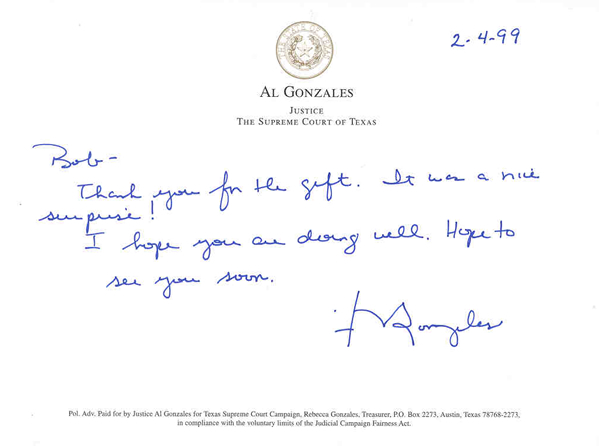 2-4-99
THE STATE OF TEXAS
AL GONZALES
JUSTICE
THE SUPREME COURT OF TEXAS
Bob-
Thank you for the gift. It was a nice
surprise!
I hope you are doing well. Hope to
see you soon.
Gonzales
Pol. Adv. Paid for by Justice Al Gonzales for Texas Supreme Court Campaign, Rebecca Gonzales, Treasurer, P.O. Box 2273, Austin, Texas 78768-2273,
in compliance with the voluntary limits of the Judicial Campaign Fairness Act.